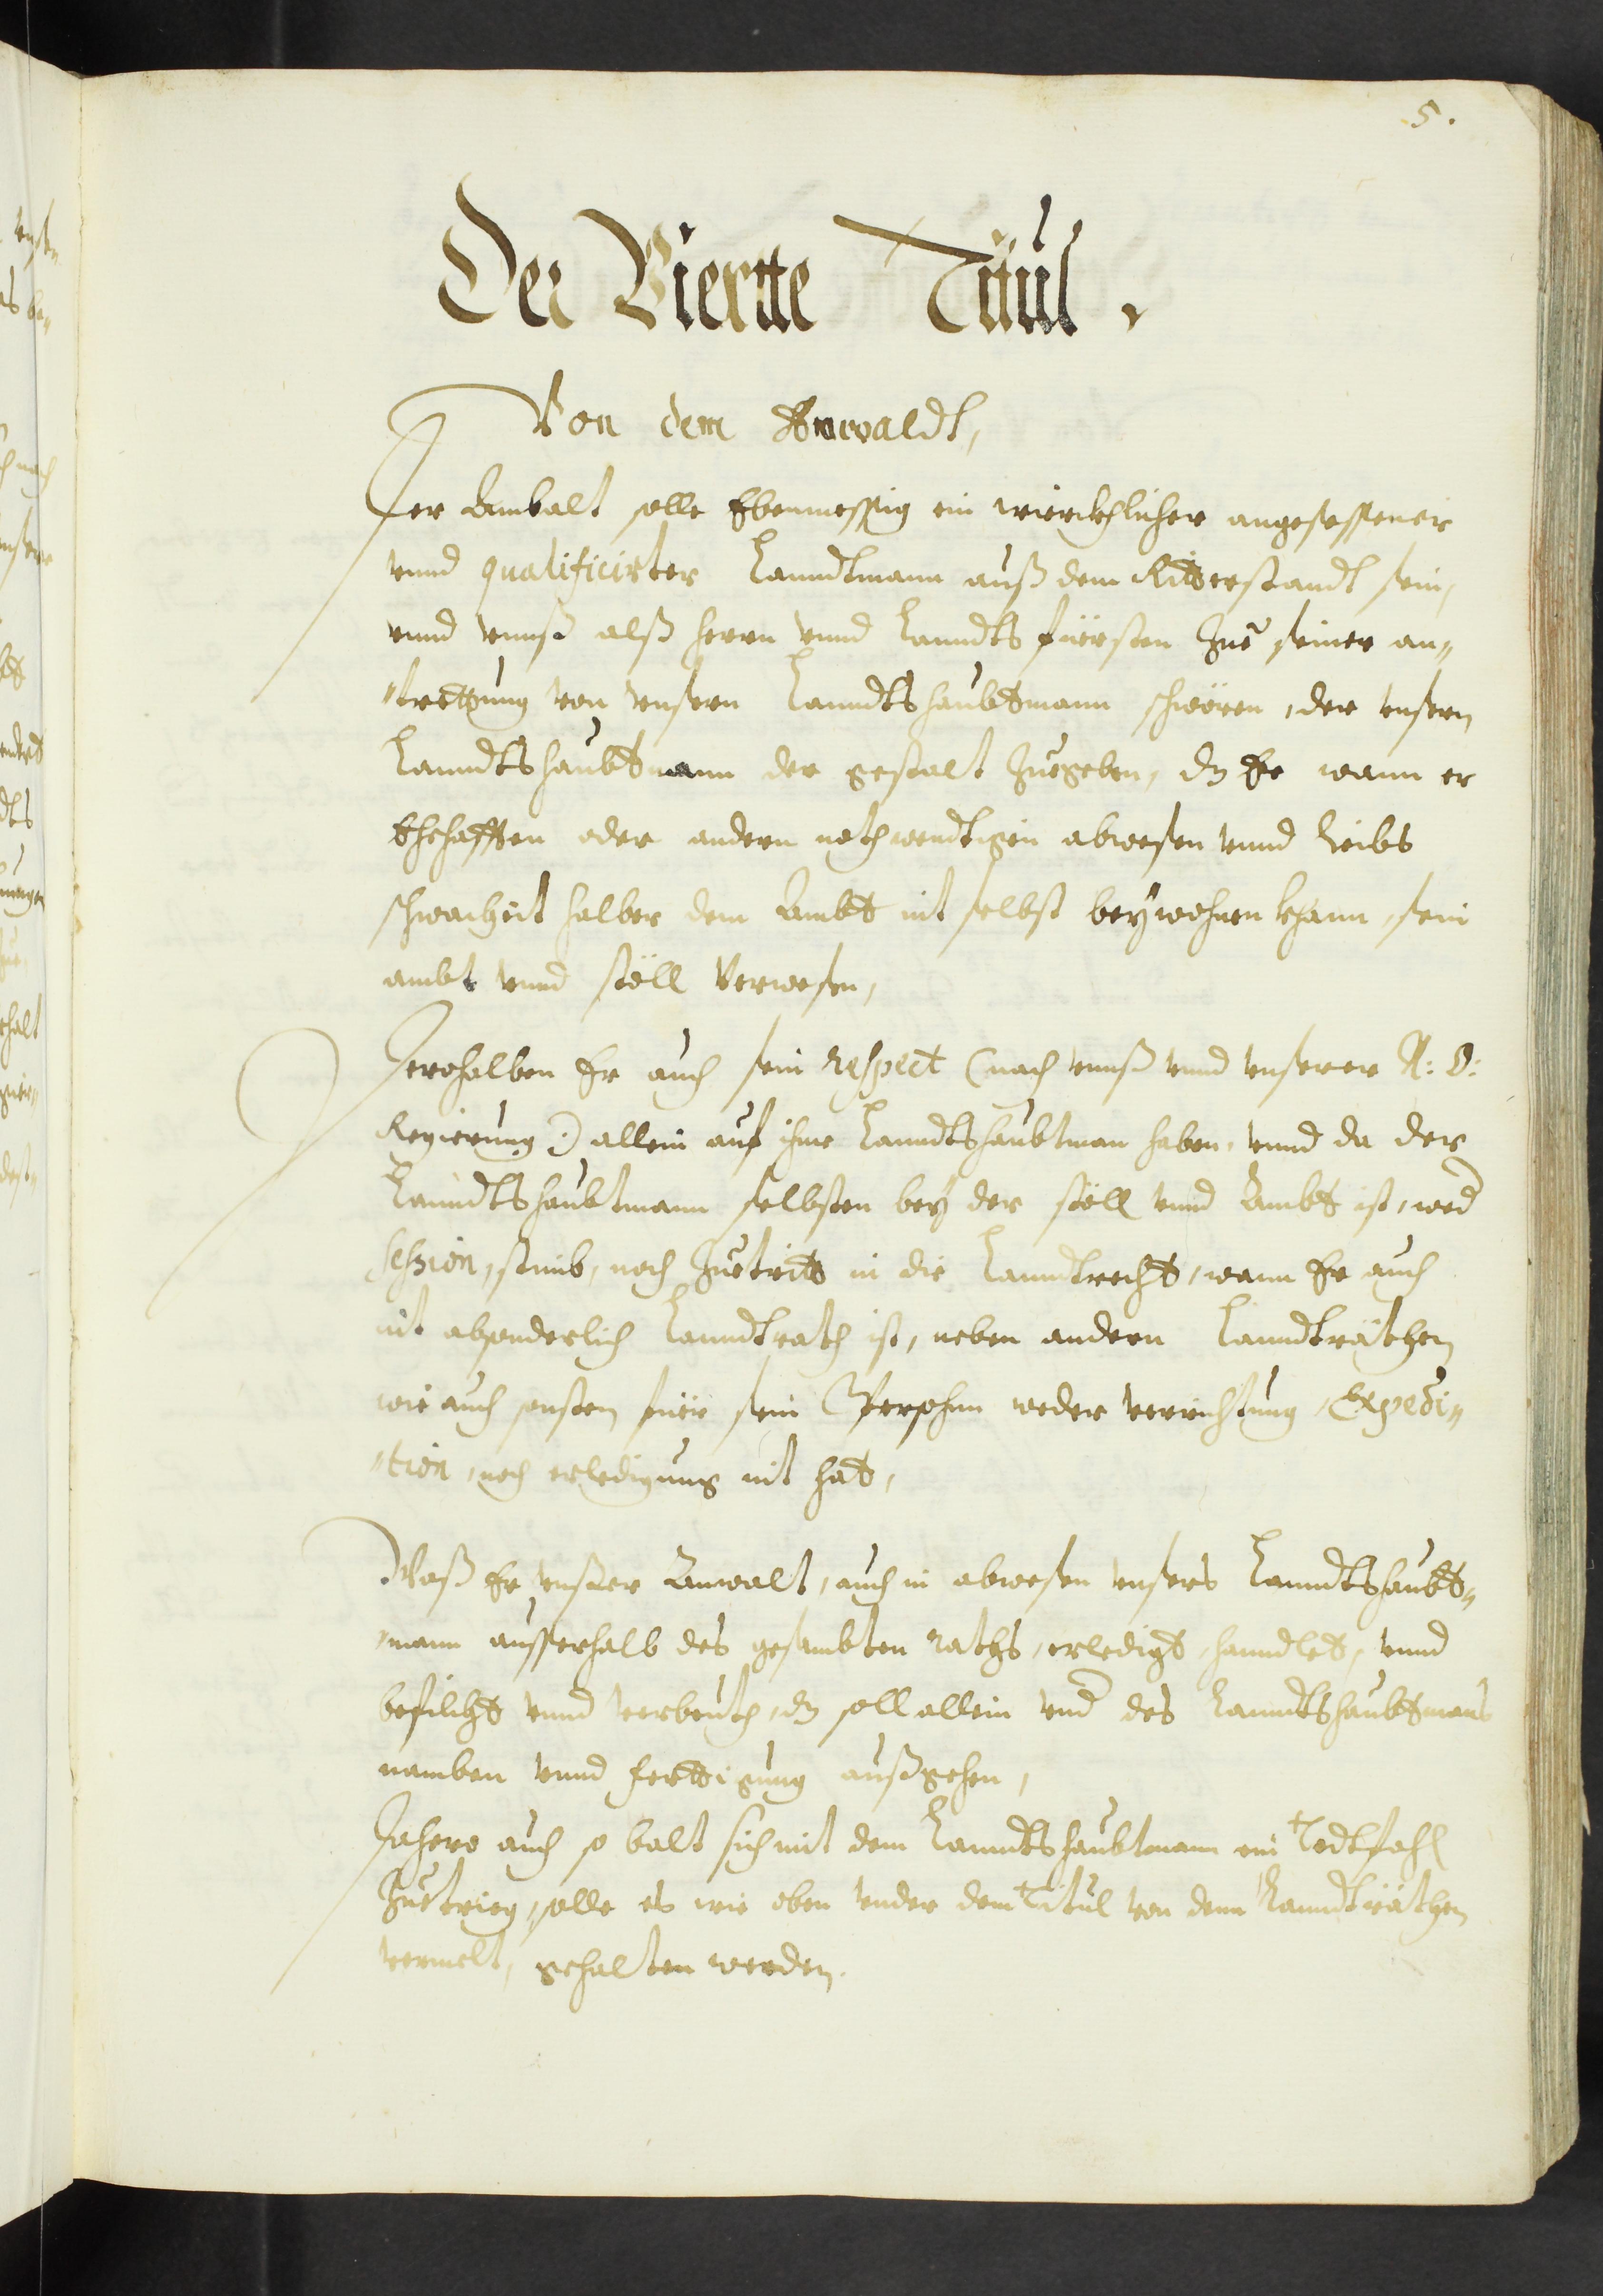 5.
Der Viertte Titul.
Von dem Anwaldt,
Der Anwalt solle Ebenmessig ein würckhlicher angesessener
vnnd qualificirter Lanndtmann auß dem Ritterstandt sein,
vnnd vnnß alß herrn vnnd Lanndts fürsten Zue seiner an„
„trettung von vnsern Lanndtshaubtmann schwören, der vnsern
Lanndtshaubtmann der gestalt Zuegeben, dz Er wann er
Ehehafften oder andern nothwendtigen abwesen vnnd Leibs
schwacheit halber dem Ambt nit selbst beÿwohnen khann, sein
ambt vnnd stöll Verwesen,
Derohalben Er auch sein respect (nach vnnß vnnd vnserer N: O:
Regierung:) allein auf ihme Lanndtshaubtman haben, vnnd da der
Lanndtshaubtmann selbsten beÿ der stöll vnnd Ambt ist, wed
session, stimb, noch Zuetritt in die Lanndtrecht, wann Er auch
nit absonderlich Lanndtrath ist, neben andern Lanndträthen
wie auch sonsten für sein Persohnn weder verrichtung, Expedi„
„tion, noch erledigung nit hat,
Waß Er vnser Anwalt, auch in abwesen vnsers Lanndtshaubt„
„mann ausserhalb des gesambten raths, erledigt, hanndlet, vnnd
befilcht vnnd verbeuth, dz soll allein vnd des Lanndtshaubtmans
namben vnnd ferttigung außgehen,
Dahero auch so balt sich mit dem Lanndtshaubtmann ein Todtfahl
Zuetrieg, solle es wie oben vnder dem Titul von denn Lanndträthen
vermelt, gehalten werden.